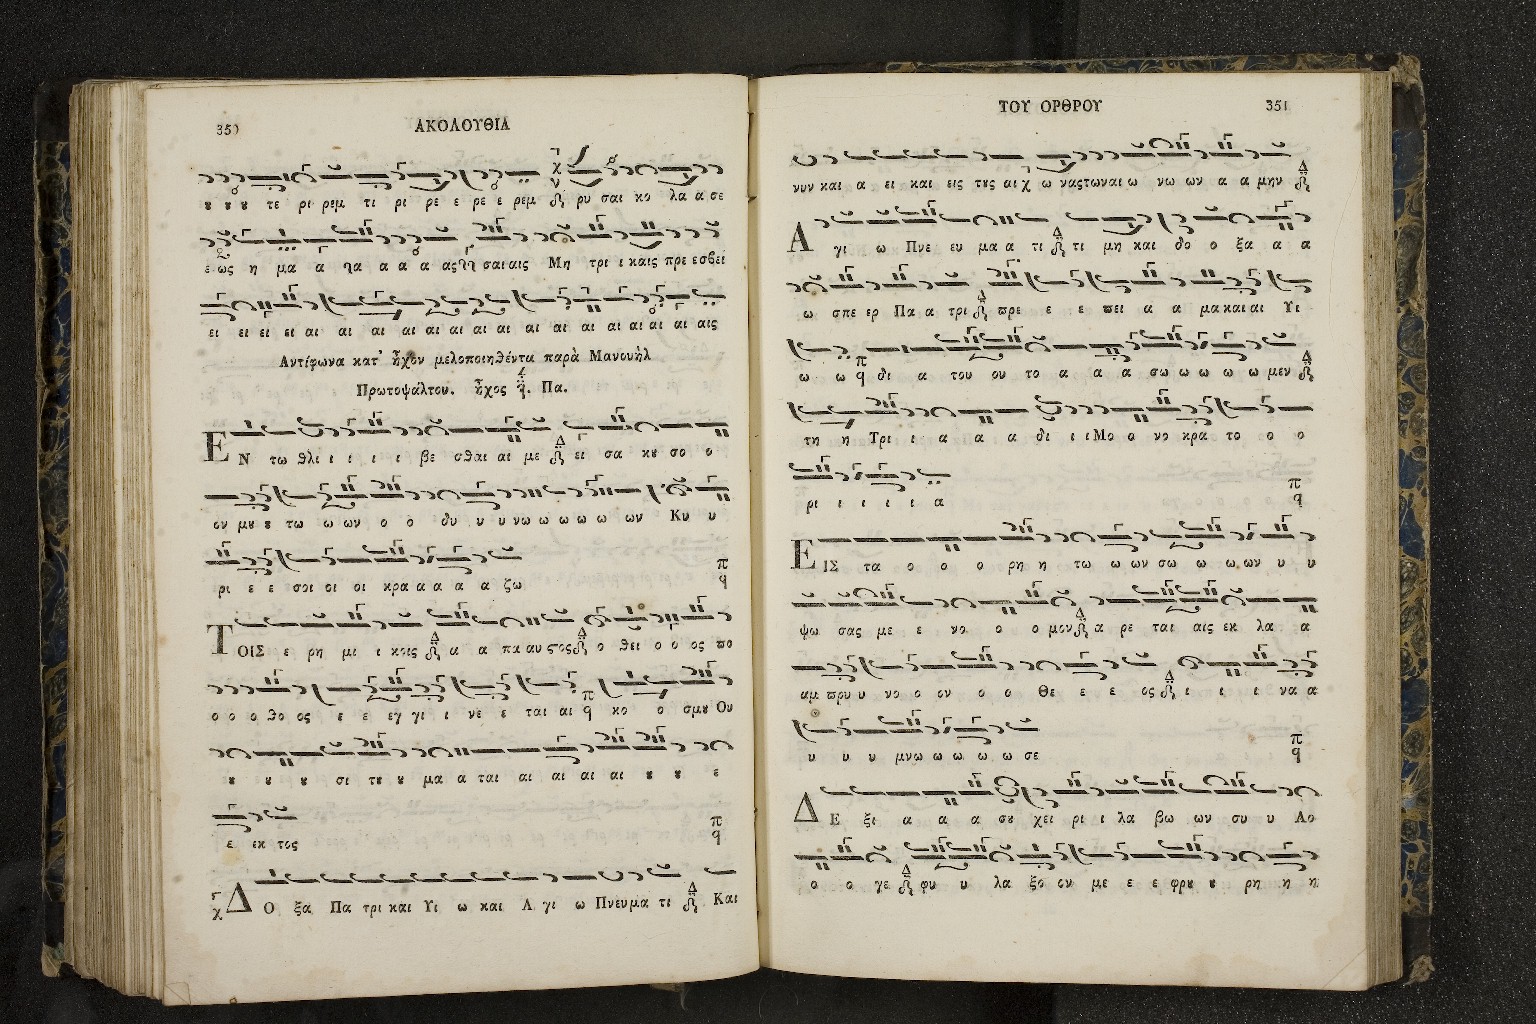 ΑΚΟΛΟΥΘΙΑ
ȣ ȣ ȣ τε ρι ρεμ τι ρι ρε ε ρε ε ρεμ ρυ σαι κο λα α σε
ε ως η μα α α α α α ας σαι αις Μη τρι ι καις πρε εσβει
ει ει ει ει αι αι αι αι αι αι αι αι αι αι αι αι αι αι αις
Αντίφωνα κατ' ἦχον μελοποιηθέντα παρὰ Μανουὴλ
Πρωτοψάλτου. ἦχος Πα.
ΕΝ τω θλι ι ι ι ι βε σθαι αι με ει σα κȣ σο ο
ον μȣ ȣ τω ω ων ο ο δυ υ υ νω ω ω ω ω ων Κυ υ
ρι ε ε σοι οι οι κρα α α α α ζω
ΤΟΙΣ ε ρη μι ι κοις α α πα αυ στος ο θει ο ο ος πο
ο ο ο θο ος ε ε εγ γι ι νε ε ται αι κο ο σμȣ Ου
ȣ ȣ ȣ σι τȣ ȣ μα α ται αι αι αι αι ȣ ȣ ε
ε εκ τος
ΔΟ ξα Πα τρι και Υι ω και Α γι ω Πνευμα τι Και
ΤΟΥ ΟΡΘΡΟΥ 351
νυν και α ει και εις τȣς αι ω νας των αι ω νω ων α α μην
Α γι ω Πνε ευ μα α τι τι μη και δο ο ξα α α
ω σπε ερ Πα α τρι πρε ε ε πει α α μα και αι Υι
ω ω δι α του ου το α α α σω ω ω ω ω μεν
τη η Τρι ι α α α δι ι ι Μο ο νο κρα το ο ο
ρι ι ι ι ι α
ΕΙΣ τα ο ο ο ρη η τω ω ων σω ω ω ων υ υ
ψω σας με ε νο ο ο μον α ρε ται αις εκ λα α
αμ πρυ υ νο ο ον ο ο Θε ε ε ος ι ι ι να α
υ υ υ μνω ω ω ω ω σε
ΔΕ ξι α α α σȣ χει ρι ι λα βω ων συ υ Λο
ο ο γε φυ υ λα ξο ον με ε ε φρȣ ȣ ρη η η